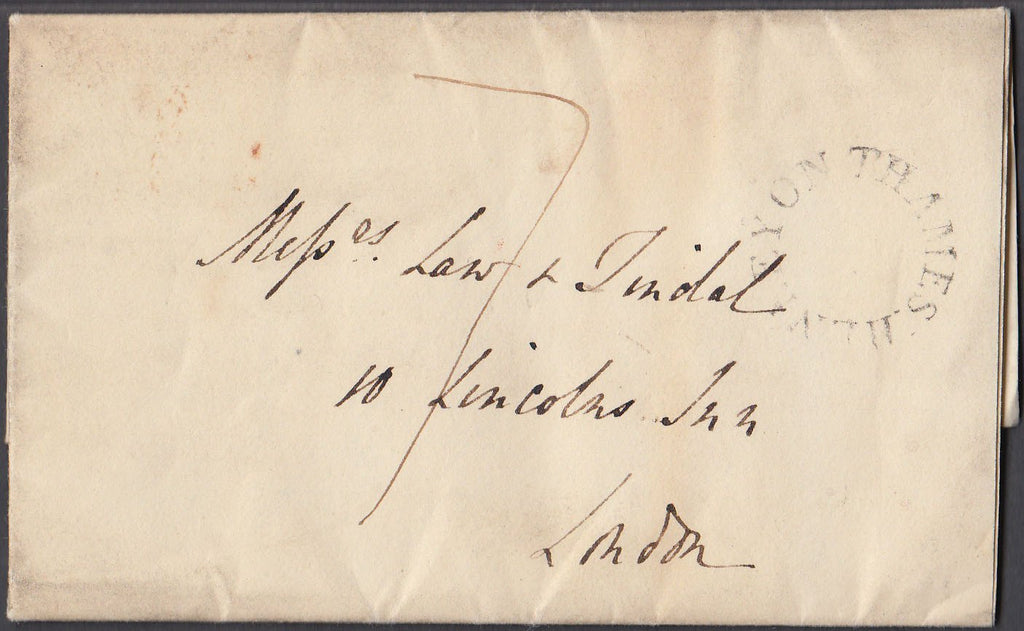 HENLEY ON THAMES
7
Meſsrs. Law & Tindal
10 Lincolns Inn
London